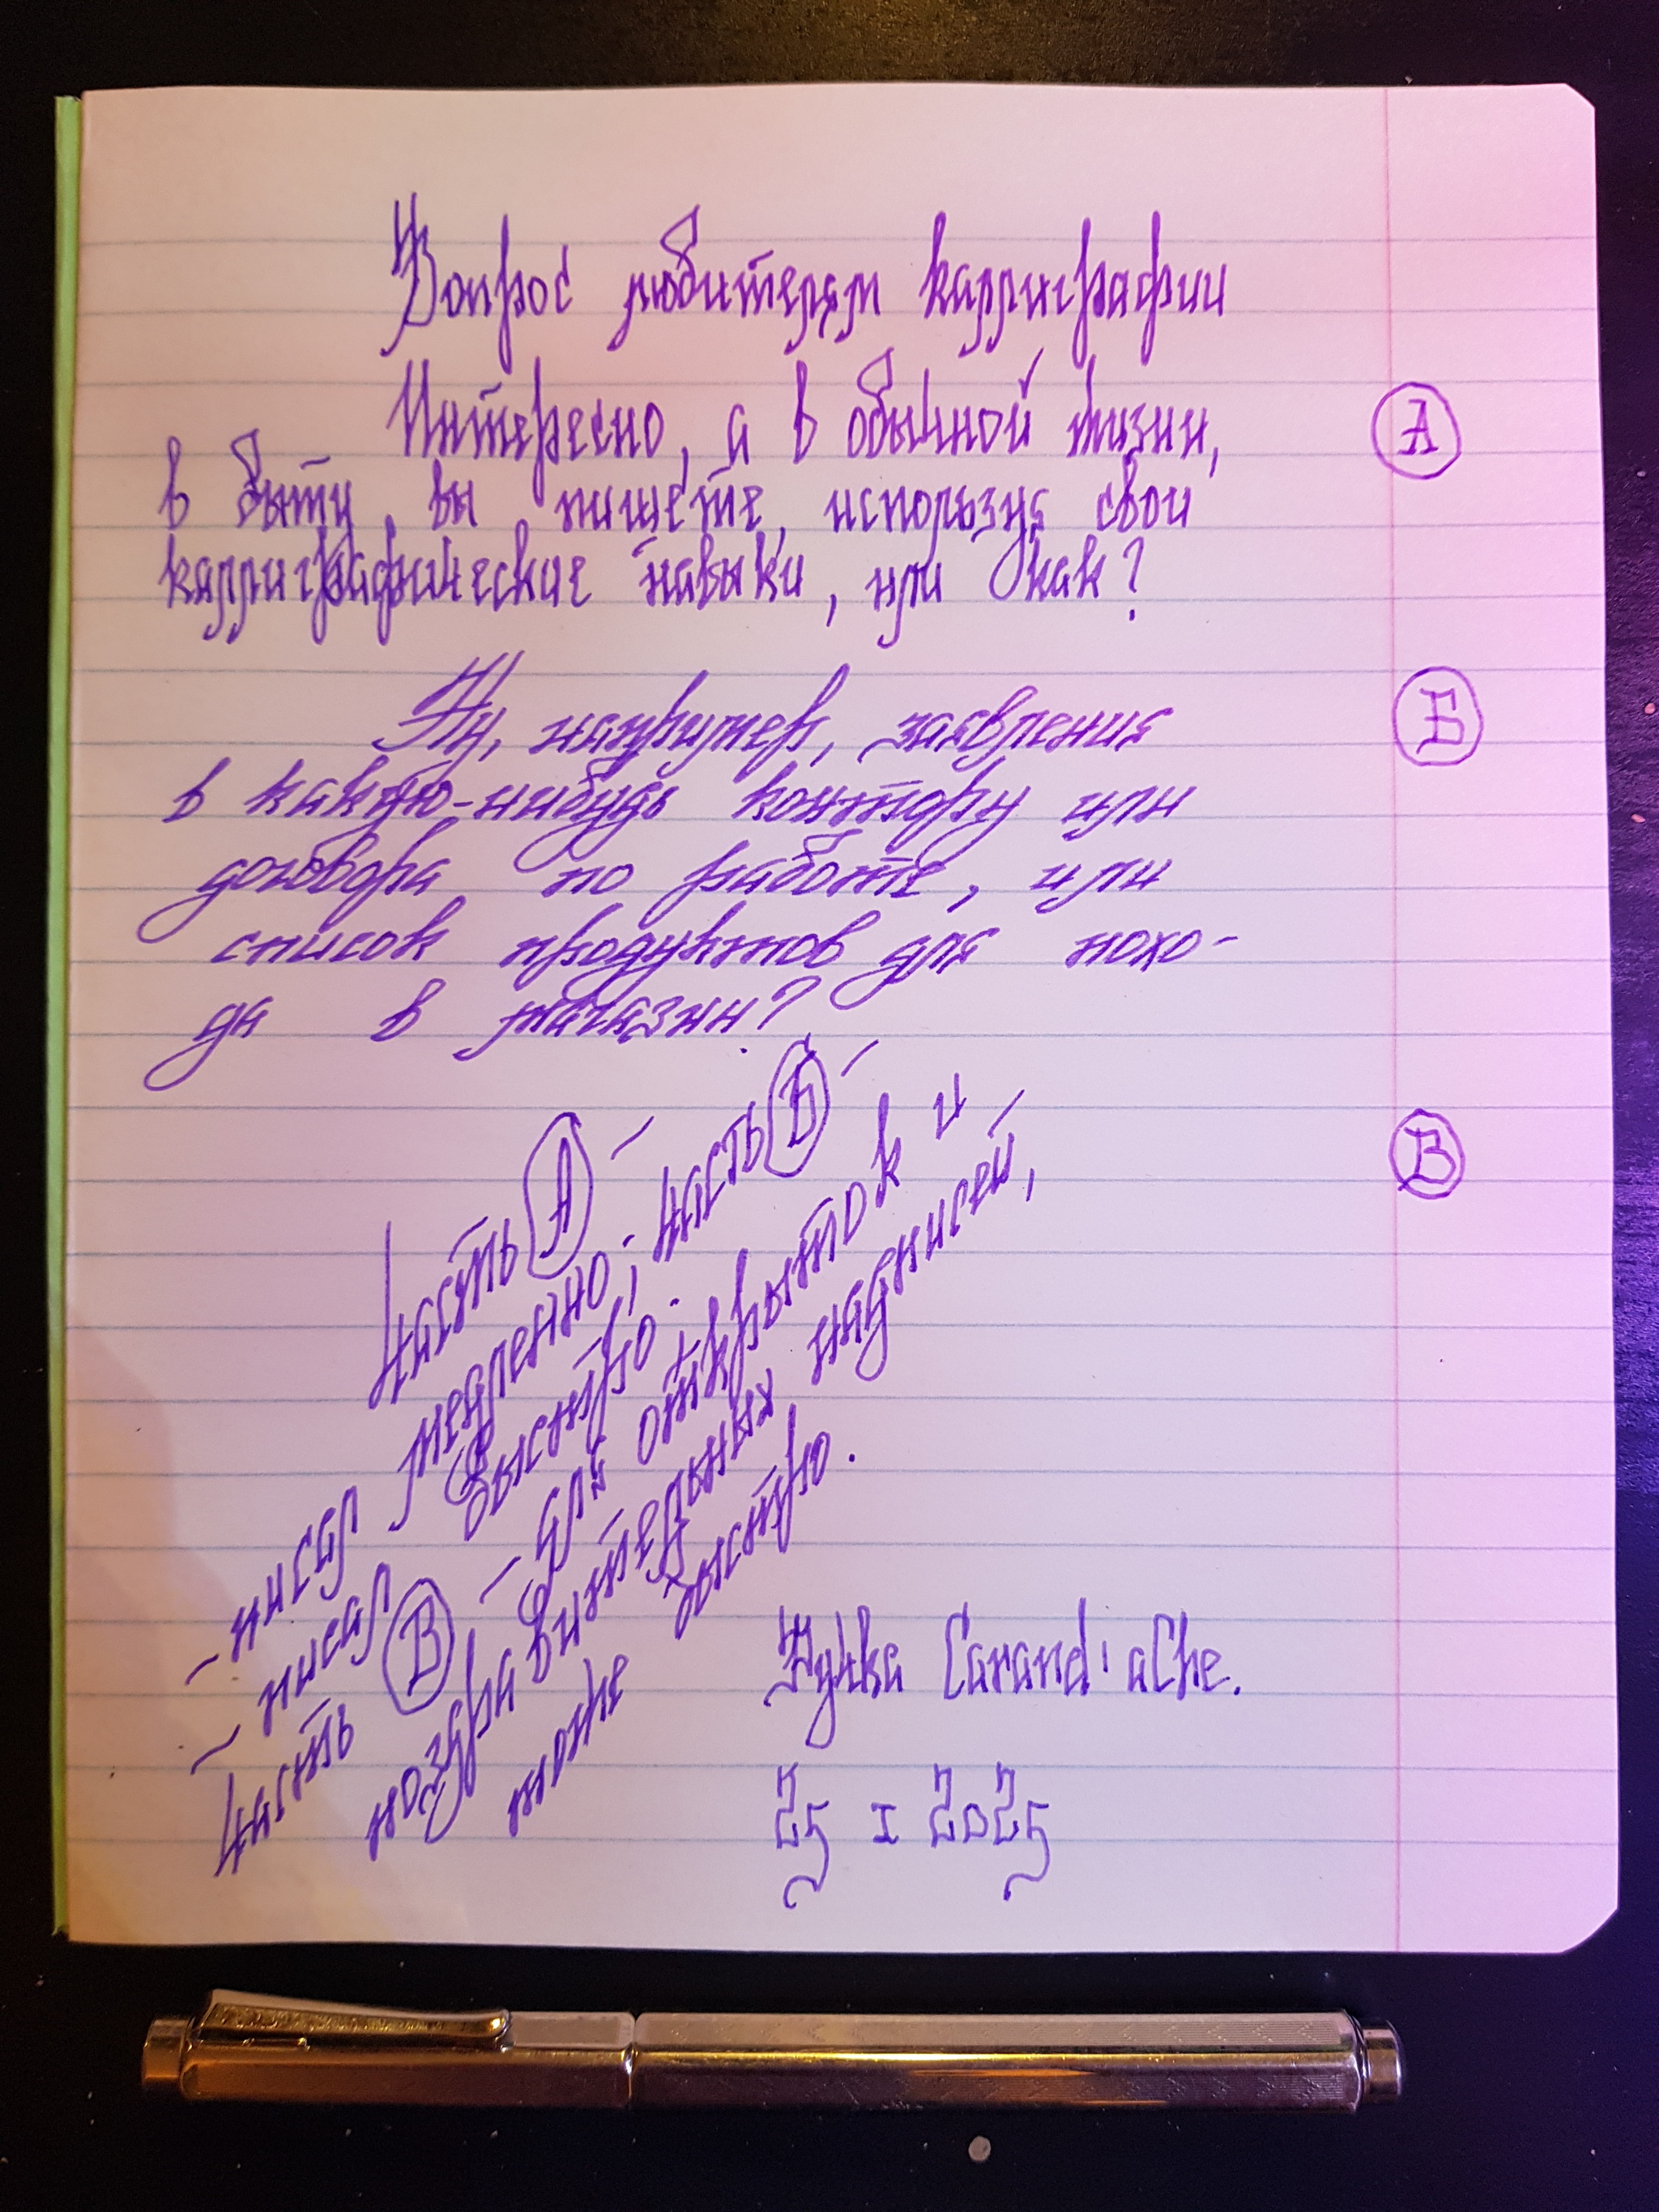 Вопрос любителям каллиграфии
Интересно, а в обычной жизни,
А
в быту, вы пишете, используя свои
каллиграфические навыки, или как?
Ну, например, заявления
Б
в какую-нибудь контору или
договора по работе, или
список продуктов для похо-
да в магазин?
В
Часть А –
– писал медленно; часть Б –
– писал быстро.
Часть В – для открыток и
поздравительных надписей,
тоже быстро.
Ручка Carand'aChe.
25 I 2025